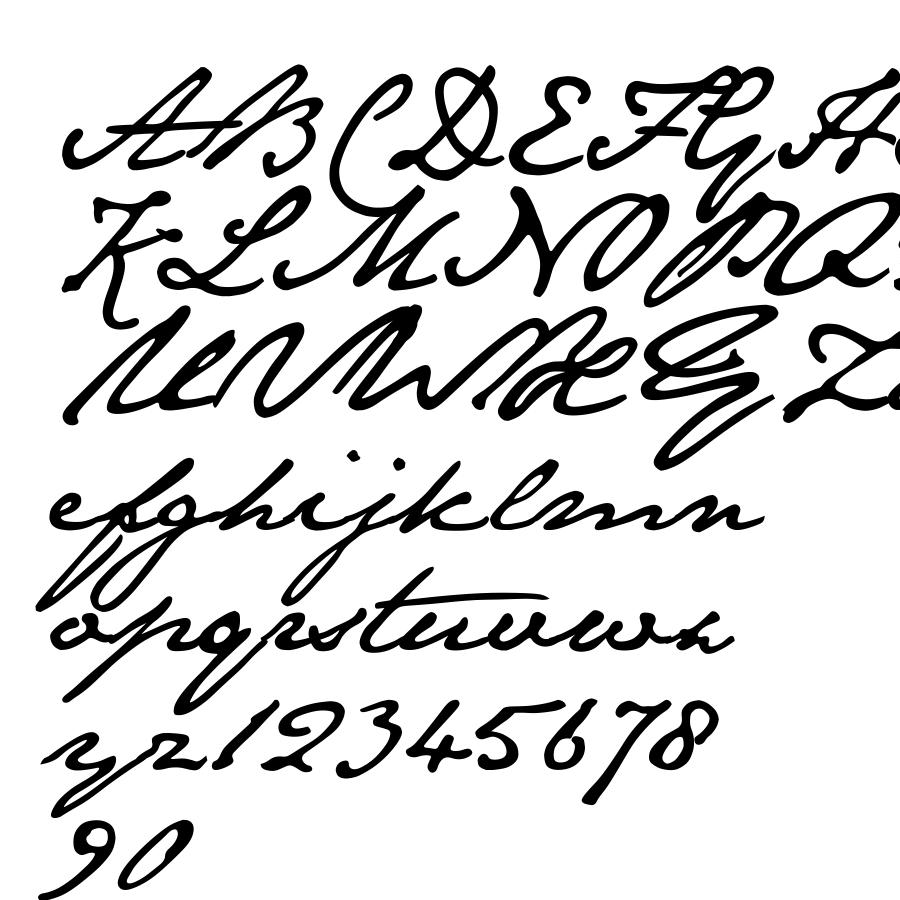 ABCDEFGH
KLMNOPQ
UVWXYZ
efghijklmn
opqrstuvwx
yz12345678
90